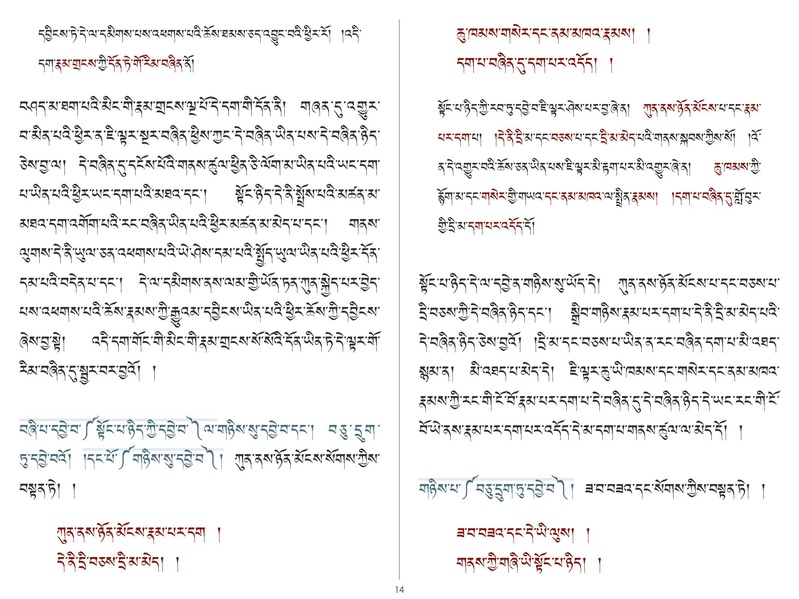 དབྱིངས་ཏེ་དེ་ལ་དམིགས་པས་འཕགས་པའི་ཆོས་ཐམས་ཅད་འབྱུང་བའི་ཕྱིར་རོ། །འདི་
དག་རྣམ་གྲངས་ཀྱི་དོན་ཏེ་གོ་རིམ་བཞིན་ནོ།
བཤད་མ་ཐག་པའི་མིང་གི་རྣམ་གྲངས་ལྔ་པོ་དེ་དག་གི་དོན་ནི། གཞན་དུ་འགྱུར་
བ་མིན་པའི་ཕྱིར་ན་ཇི་ལྟར་སྔར་བཞིན་ཕྱིས་ཀྱང་དེ་བཞིན་ཡིན་པས་དེ་བཞིན་ཉིད་
ཅེས་བྱ་ལ། དེ་བཞིན་དུ་དངོས་པོའི་གནས་ཚུལ་ཕྱིན་ཅི་ལོག་མ་ཡིན་པའི་ཡང་དག་
པ་ཡིན་པའི་ཕྱིར་ཡང་དག་པའི་མཐའ་དང་། སྟོང་ཉིད་དེ་ནི་སྤྲོས་པའི་མཚན་མ་
མཐའ་དག་འགོག་པའི་རང་བཞིན་ཡིན་པའི་ཕྱིར་མཚན་མ་མེད་པ་དང་། གནས་
ལུགས་དེ་ནི་ཡུལ་ཅན་འཕགས་པའི་ཡེ་ཤེས་དམ་པའི་སྤྱོད་ཡུལ་ཡིན་པའི་ཕྱིར་དོན་
དམ་པའི་བདེན་པ་དང་། དེ་ལ་དམིགས་ནས་ལམ་གྱི་ཡོན་ཏན་ཀུན་སྐྱེད་པར་བྱེད་
པས་འཕགས་པའི་ཆོས་རྣམས་ཀྱི་རྒྱུའམ་དབྱིངས་ཡིན་པའི་ཕྱིར་ཆོས་ཀྱི་དབྱིངས་
ཞེས་བྱ་སྟེ། འདི་དག་གོང་གི་མིང་གི་རྣམ་གྲངས་སོ་སོའི་དོན་ཡིན་ཏེ་དེ་ལྟར་གོ་
རིམ་བཞིན་དུ་སྦྱར་བར་བྱའོ། །
བཞི་པ་དབྱེ་བ་༼སྟོང་པ་ཉིད་ཀྱི་དབྱེ་བ་༽ལ་གཉིས་སུ་དབྱེ་བ་དང་། བཅུ་དྲུག་
ཏུ་དབྱེ་བའོ། །དང་པོ་༼གཉིས་སུ་དབྱེ་བ་༽། ཀུན་ནས་ཉོན་མོངས་སོགས་ཀྱིས་
བསྟན་ཏེ། །
ཀུན་ནས་ཉོན་མོངས་རྣམ་པར་དག །
དེ་ནི་དྲི་བཅས་དྲི་མ་མེད། །
ཆུ་ཁམས་གསེར་དང་ནམ་མཁའ་རྣམས། །
དག་པ་བཞིན་དུ་དག་པར་འདོད། །
སྟོང་པ་ཉིད་ཀྱི་རབ་ཏུ་དབྱེ་བ་ཇི་ལྟར་ཤེས་པར་བྱ་ཞེ་ན། ཀུན་ནས་ཉོན་མོངས་པ་དང་རྣམ་
པར་དག་པ། །དེ་ནི་དྲི་མ་དང་བཅས་པ་དང་དྲི་མ་མེད་པའི་གནས་སྐབས་ཀྱིས་སོ། །འོ་
ན་དེ་འགྱུར་བའི་ཆོས་ཅན་ཡིན་པས་ཇི་ལྟར་མི་རྟག་པར་མི་འགྱུར་ཞེ་ན། ཆུ་ཁམས་ཀྱི་
རྙོག་མ་དང་གསེར་གྱི་གཡའ་དང་ནམ་མཁའ་ལ་སྤྲིན་རྣམས། །དག་པ་བཞིན་དུ་གློ་བུར་
གྱི་དྲི་མ་དག་པར་འདོད་དོ།
སྟོང་པ་ཉིད་དེ་ལ་དབྱེ་ན་གཉིས་སུ་ཡོད་དེ། ཀུན་ནས་ཉོན་མོངས་པ་དང་བཅས་པ་
དྲི་བཅས་ཀྱི་དེ་བཞིན་ཉིད་དང་། སྒྲིབ་གཉིས་རྣམ་པར་དག་པ་དེ་ནི་དྲི་མ་མེད་པའི་
དེ་བཞིན་ཉིད་ཅེས་བྱའོ། །དྲི་མ་དང་བཅས་པ་ཡིན་ན་རང་བཞིན་དག་པ་མི་འཐད་
སྙམ་ན། མི་འཐད་པ་མེད་དེ། ཇི་ལྟར་ཆུ་ཡི་ཁམས་དང་གསེར་དང་ནམ་མཁའ་
རྣམས་ཀྱི་རང་གི་ངོ་བོ་རྣམ་པར་དག་པ་དེ་བཞིན་དུ་དེ་བཞིན་ཉིད་དེ་ཡང་རང་གི་ངོ་
བོ་ཡེ་ནས་རྣམ་པར་དག་པར་འདོད་དེ་མ་དག་པ་གནས་ཚུལ་ལ་མེད་དོ། །
གཉིས་པ་༼བཅུ་དྲུག་ཏུ་དབྱེ་བ་༽། ཟ་བ་བཟའ་དང་སོགས་ཀྱིས་བསྟན་ཏེ། །
ཟ་བ་བཟའ་དང་དེ་ཡི་ལུས། །
གནས་ཀྱི་གཞི་ཡི་སྟོང་པ་ཉིད། །
14